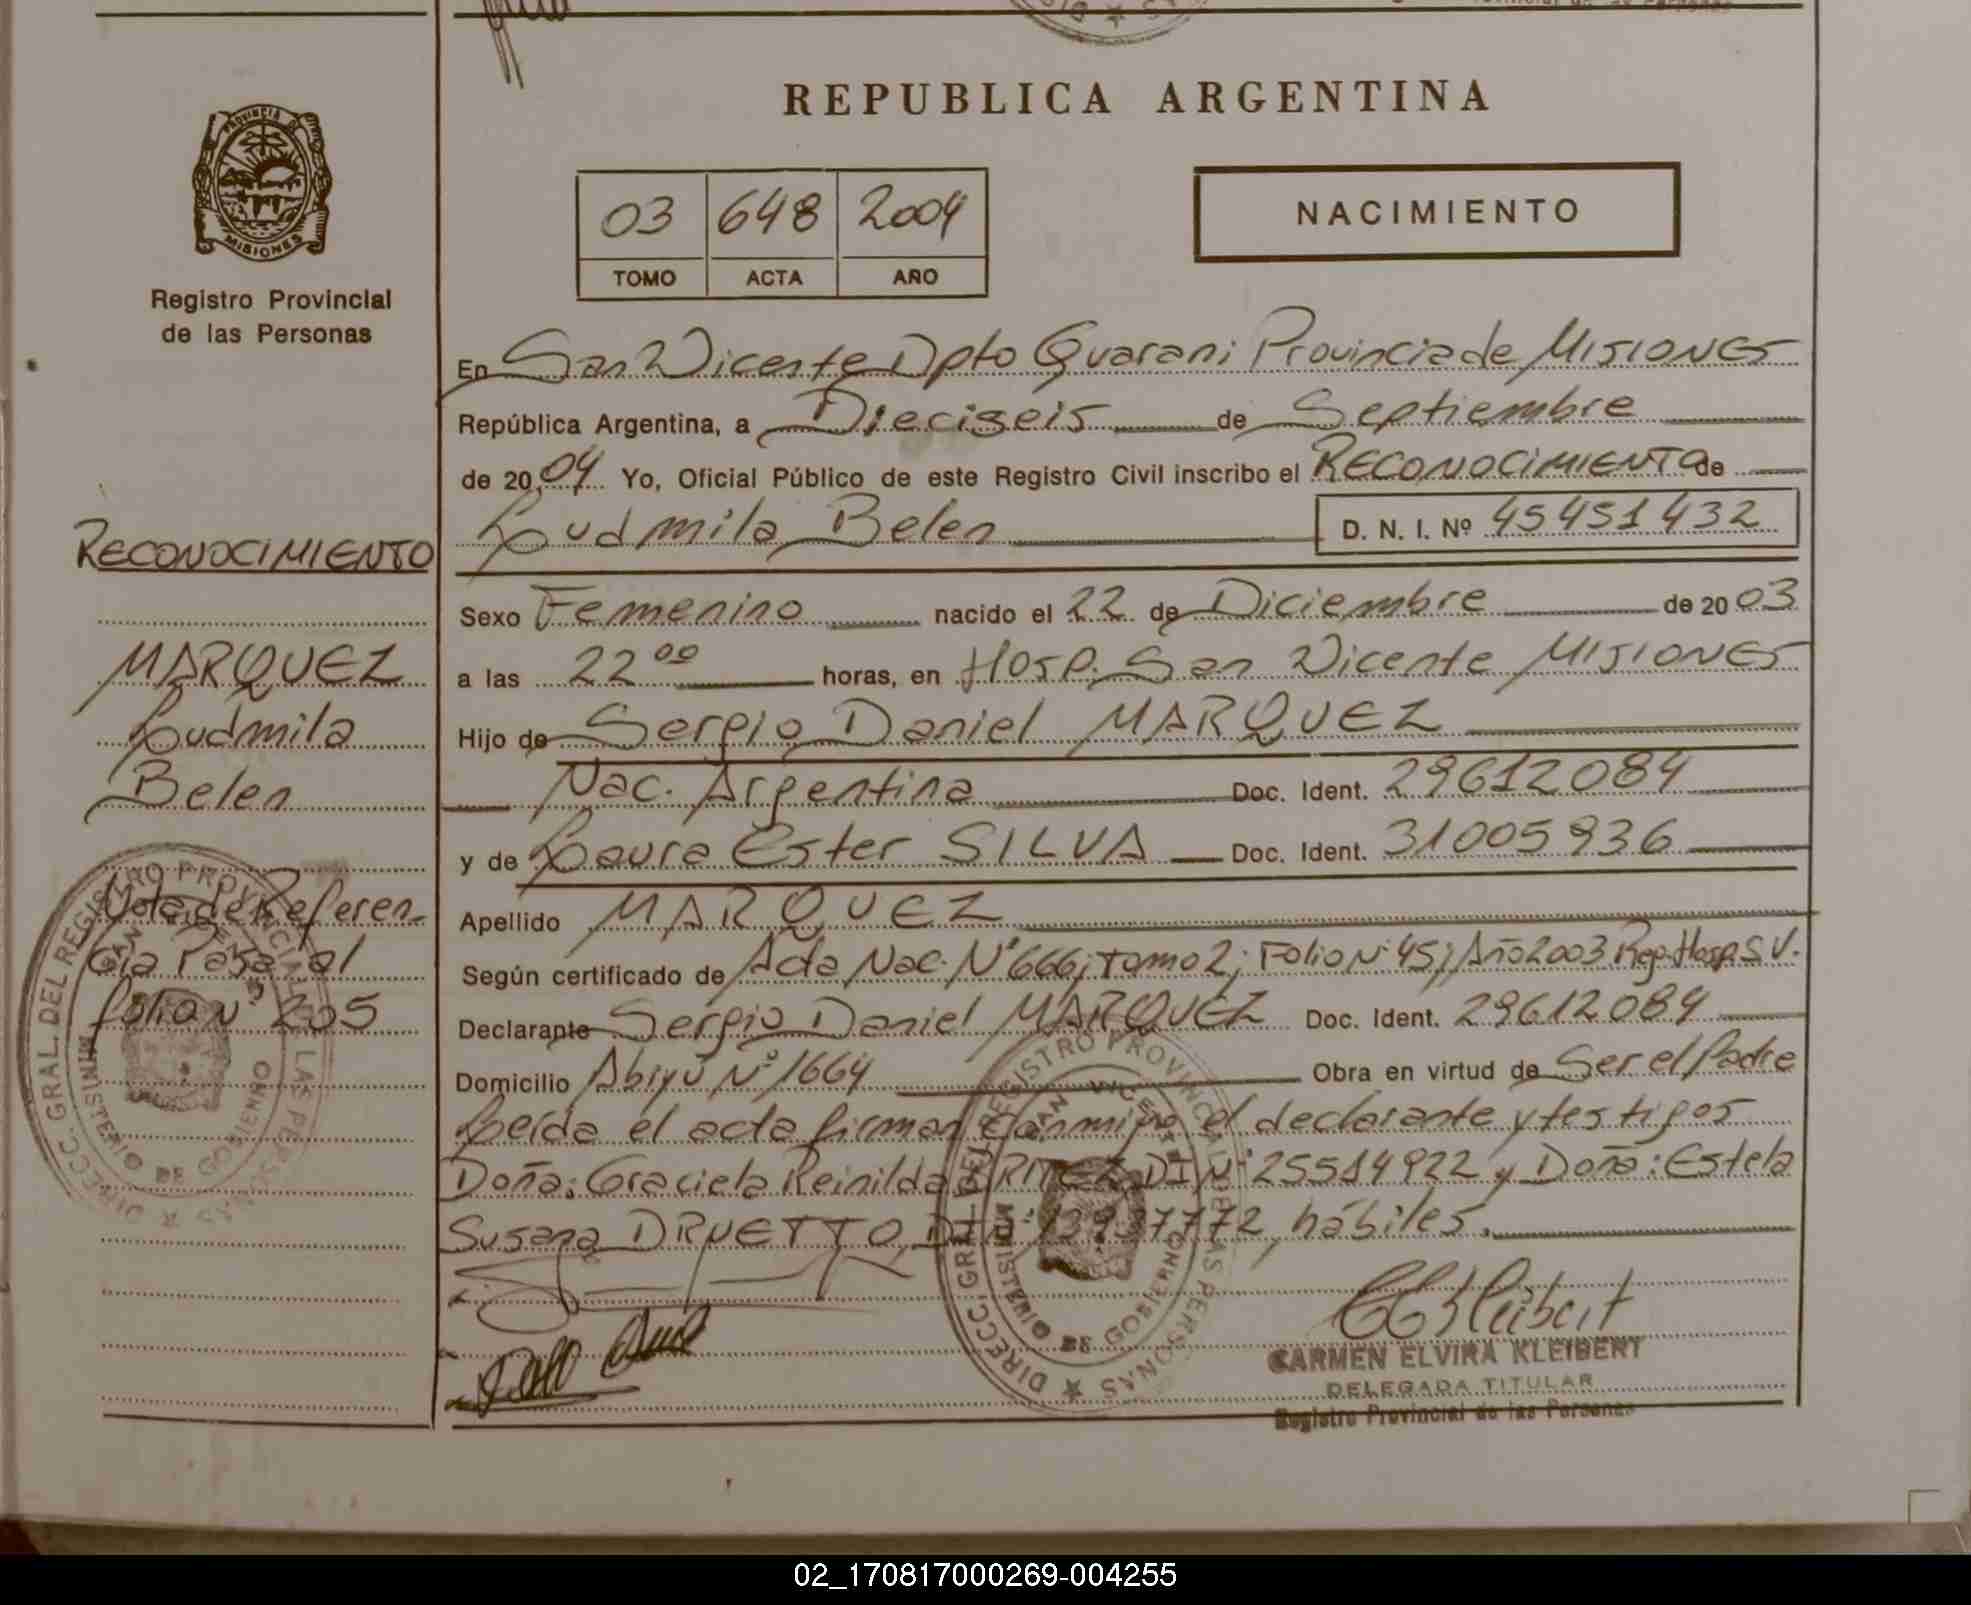 REPUBLICA ARGENTINA
PROVINCIA DE
MISIONES
Registro Provincial
de las Personas
03 648 2004
TOMO ACTA AÑO
NACIMIENTO
En San Vicente Dpto Guarani Provincia de MISIONES
República Argentina, a Dieciseis de Septiembre
de 2004 Yo, Oficial Público de este Registro Civil inscribo el RECONOCIMIENTO de
Ludmila Belen D. N. I. Nº 45451432
Sexo Femenino nacido el 22 de Diciembre de 2003
a las 22⁰⁰ horas, en Hosp. San Vicente MISIONES
Hijo de Sergio Daniel MARQUEZ
Nac. Argentina Doc. Ident. 29612084
y de Laura Ester SILVA Doc. Ident. 31005936
Apellido MARQUEZ
Según certificado de Acta Nac. Nº 666; Tomo 2; Folio Nº 45; Año 2003 Reg. Hosp. S V.
Declarante Sergio Daniel MARQUEZ Doc. Ident. 29612084
Domicilio Abiyú Nº 1664 Obra en virtud de Ser el Padre
Leída el acta firman conmigo el declarante y testigos
Doña: Graciela Reinilda DI Nº 25514922 y Doña: Estela
Susana DRUETTO, hábiles.
CARMEN ELVIRA KLEIBERT
DELEGADA TITULAR
Registro Provincial de las Personas
RECONOCIMIENTO
MARQUEZ
Ludmila
Belen
Nota de Referen-
cia Pasa al
folio Nº 205
DIRECC. GRAL. DEL REGISTRO PROVINCIAL DE LAS PERSONAS
MINISTERIO DE GOBIERNO
SAN VICENTE
DIRECC. GRAL. DEL REGISTRO PROVINCIAL DE LAS PERSONAS
MINISTERIO DE GOBIERNO
SAN VICENTE
02_170817000269-004255